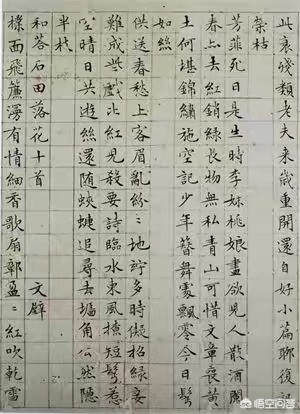 此衰殘類老夫來歲重開還自好小篇聊復記
榮枯
芳菲死日是生時李妹桃娘盡欲兒人散酒闌
春亦去紅銷綠長物無私青山可惜文章喪黃
土何堪錦繡施空記少年簪舞處飄零今日鬢
如絲
供送春愁上客眉亂紛〻地竚多時儗招綠妾
難成些戲比紅兒殺要詩臨水東風撩短鬢惹
空晴日共遊絲還隨蛺蝶追尋去墻角公然隱
半枝
和荅石田落花十首 文壁
撲面飛簾漫有情細香歌扇鄣盈〻紅吹乾雪
悟空问答